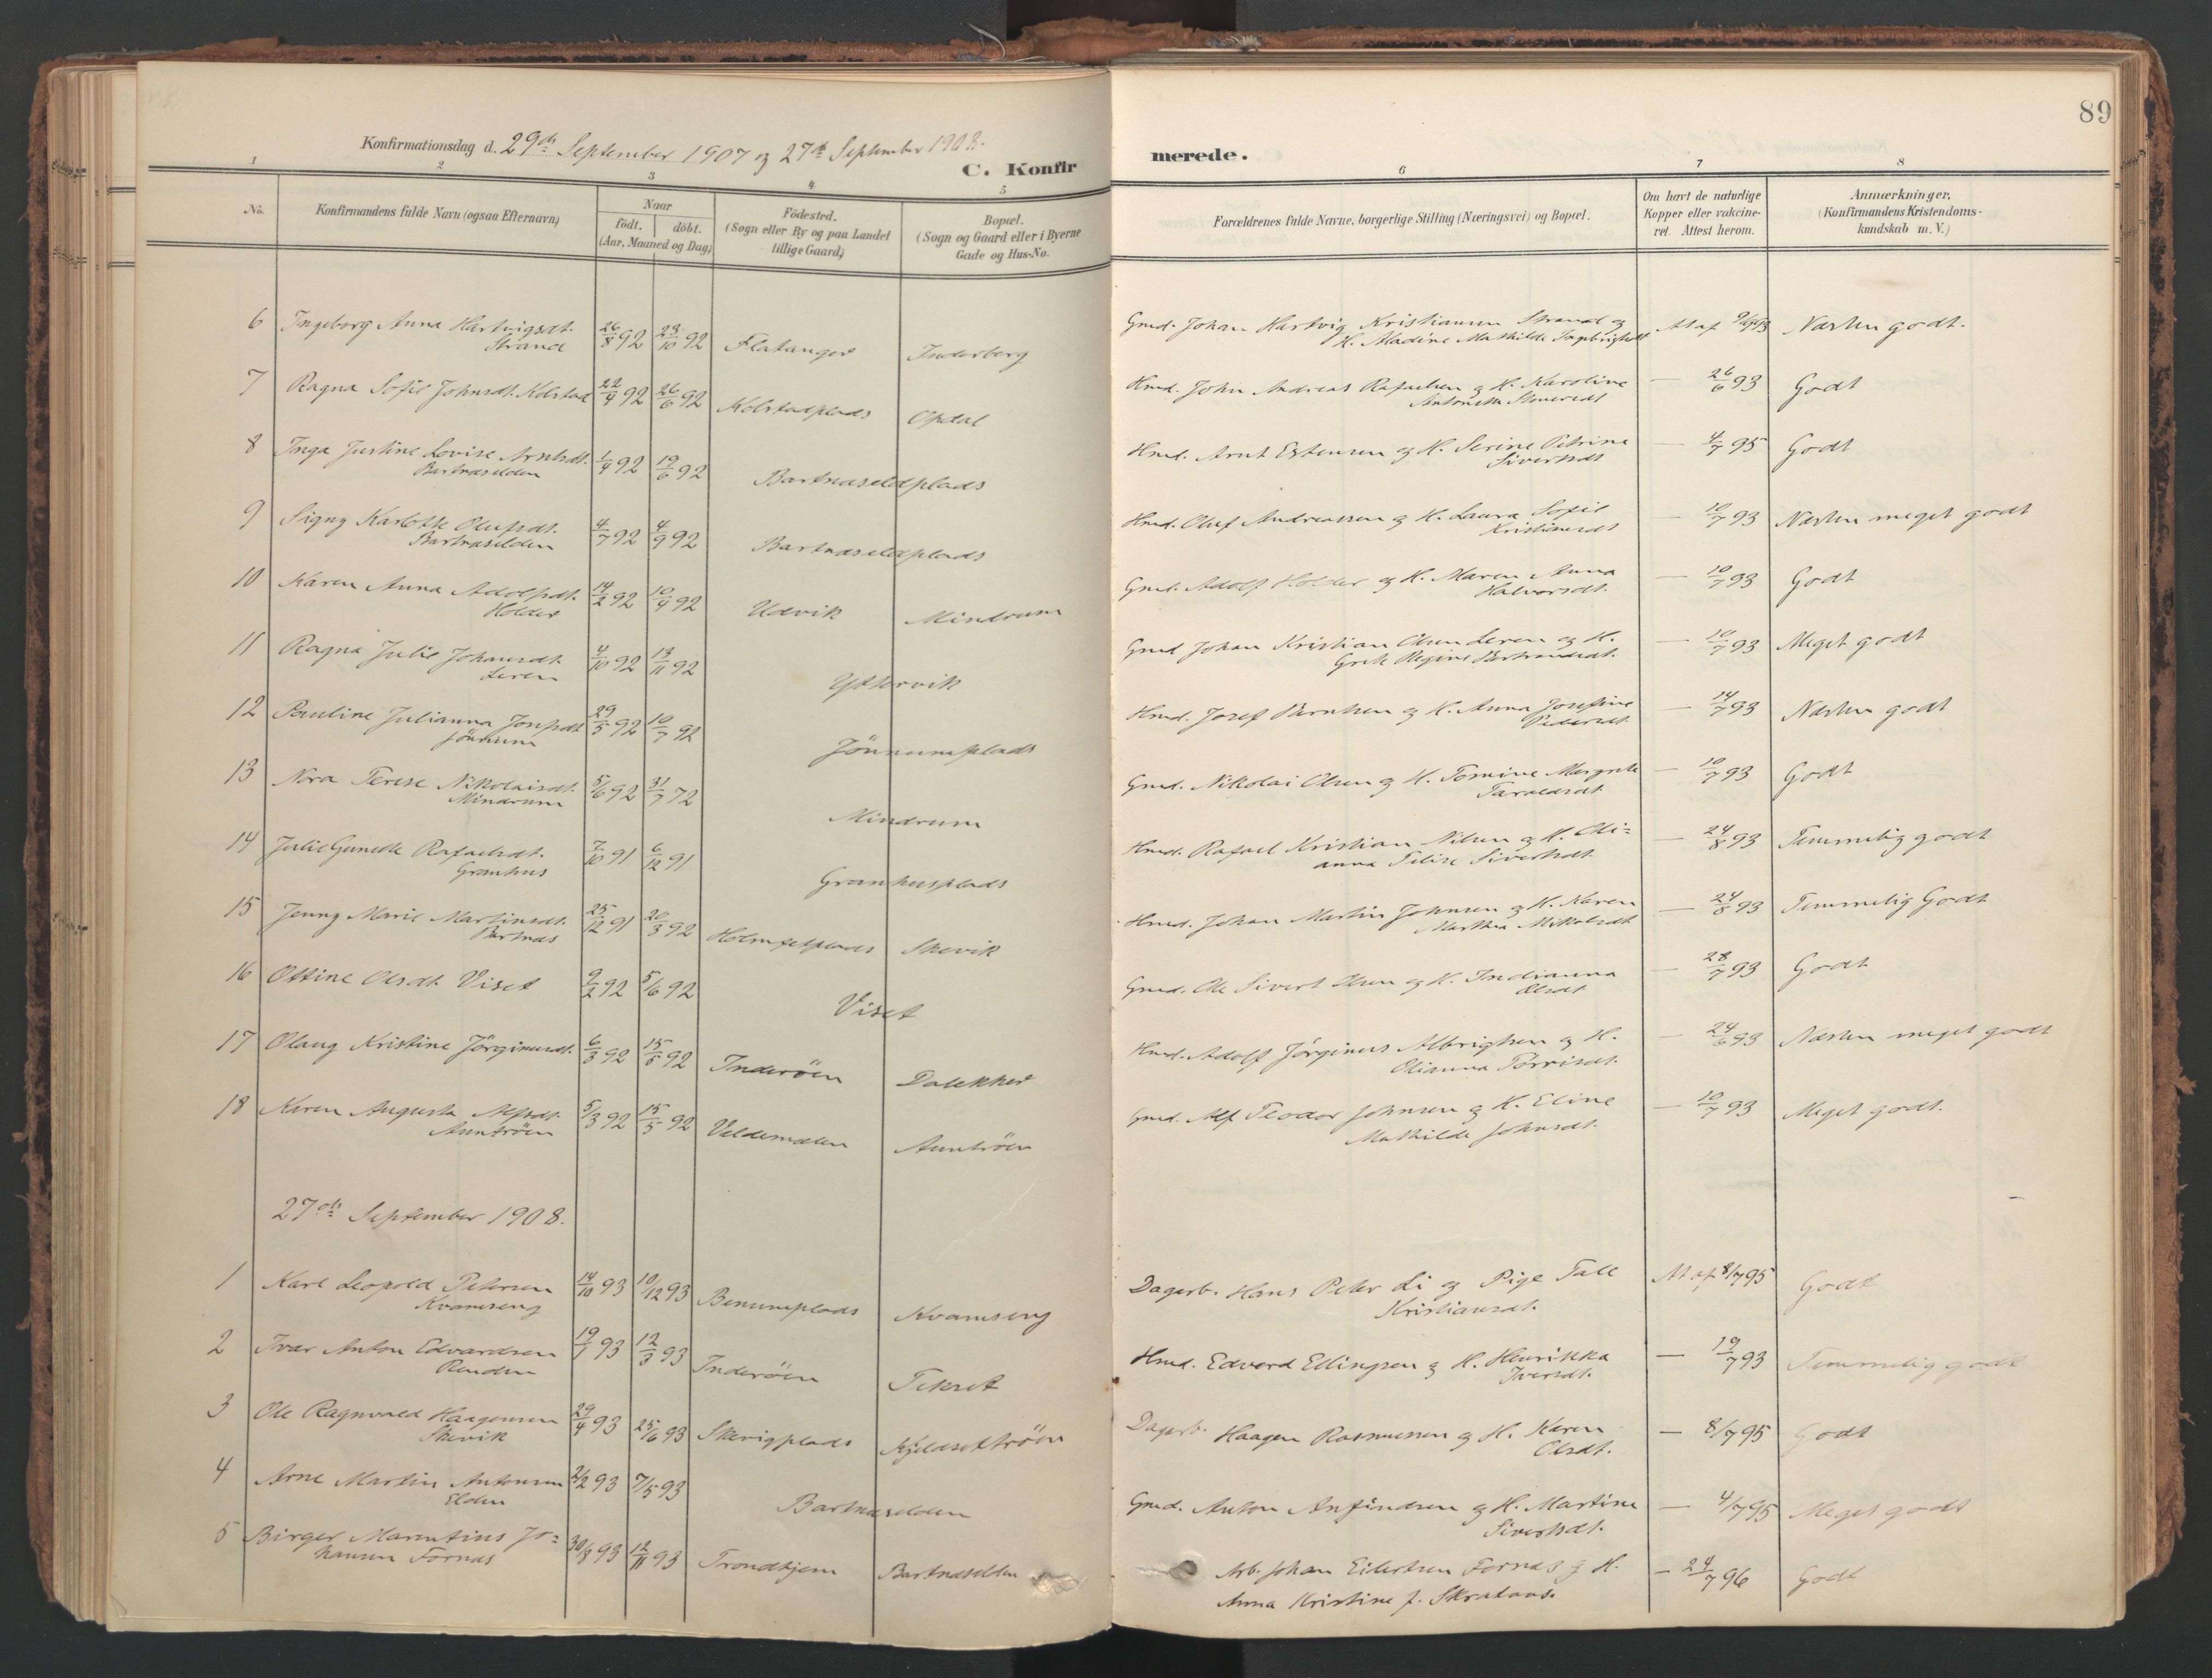 89
Konfirmationsdag d. 29de September 1907 og 27de September 1908.
C. Konfirmerede.
1 2 3 4 5 6 7 8
No. Konfirmandens fulde Navn (ogsaa Efternavn) Naar födt. döbt. (Aar, Maaned og Dag) Födested. (Sogn eller By og paa Landet tillige Gaard) Bopæl. (Sogn og Gaard eller i Byerne Gade og Hus-No. Forældrenes fulde Navne, borgerlige Stilling (Næringsvei) og Bopæl. Om havt de naturlige Kopper eller vakcineret Attest herom. Anmærkninger. (Konfirmandens Kristendomskundskab m. V.)
6 Ingeborg Anna Hartvigsdt. 26/8 92 23/10 92 Flatanger Inderberg Gmd. Johan Hartvig Kristiansen Strand og Næsten godt.
Strand H. Madine Mathilde
7 Ragna Sofie Johnsdt. Kolstad 22/4 92 26/6 92 Kolstadplads Opdal Hmd. John Andreas Rafaelsen og H. Karoline — 26/6 93 Godt
Antonette
8 Inga Justine Lovise Arntsdt. 1/4 92 19/6 92 Bartnæseldplads Hmd. Arnt Estensen og H. Serine Petrine — 4/7 95 Godt
Bartnæselden Sivertsdt
9 Signy Karlotte Olufsdt. 4/7 92 4/9 92 Bartnæseldplads Hmd. Oluf Andreassen og H. Laura Sofie — 10/7 93 Næsten meget godt
Bartnæselden Kristiansdt
10 Karen Anna Adolfsdt. 14/2 92 10/4 92 Udvik Mindrum Gmd. Adolf Holder og H. Maren Anna — 10/7 93 Godt
Holder Halvorsdt.
11 Ragna Julie Johansdt. 4/10 92 13/11 92 Yttervik Gmd Johan Kristian Olsen Leren og H. — 10/7 93 Meget godt
Leren Grete Regine Bertrandsdt.
12 Pauline Julianna Josefsdt 29/5 92 10/7 92 Jönnumplads Hmd. Josef Berntsen og H. Anna Josefine — 14/7 93 Næsten godt
Jönnum Pedersdt.
13 Nora Terese Nikolaisdt. 5/6 92 31/7 72 Mindrum Gmd. Nikolai Olsen og H. Tomine Margrete — 10/7 93 Godt
Mindrum Taraldsdt.
14 Julie Gunelle Rafaelsdt. 7/10 91 6/12 91 Granhusplads Hmd. Rafael Kristian Nilsen og H. Oli= — 24/8 93 Temmelig godt
Granhus anna Sivertsdt.
15 Jenny Marie Martinsdt. 25/12 91 20/3 92 Skevik Hmd. Johan Martin Johnsen og H. Karen — 24/8 93 Temmelig Godt
Bartnæs Marthea Mikalsdt
16 Ottine Olsdt. Viset 9/2 92 5/6 92 Viset Gmd. Ole Sivert Olsen og H. Indianna — 28/7 93 Godt
Olsdt.
17 Olaug Kristine Jörginusdt. 6/3 92 15/5 92 Inderöen Hmd. Adolf Jörginus Albrigtsen og H. — 24/6 93 Næsten meget godt
Elianna Torrisdt.
18 Karen Augusta Alfsdt. 5/3 92 15/5 92 Valdemalen Auntröen Gmd. Alf Teodor Johnsen og H. Eline — 10/7 93 Meget godt.
Auntröen Mathilde Johnsdt.
27de September 1908.
1 Karl Leopold Petersen 14/10 93 10/12 93 Benumplads Kvamseng Dagarb. Hans Peter Li og Pige Tale At af 8/7 95 Godt
Kvamseng Kristiansdt.
2 Ivar Anton Edvardsen 19/1 93 12/3 93 Inderöen Tekset Hmd. Edvard Ellingsen og H. Henrikka — 19/7 93 Temmelig godt
Renden Iversdt.
3 Ole Ragnvald Haagensen 29/4 93 25/6 93 Skevigplads Kjeldsettröen Dagarb. Haagen Rasmussen og H. Karen — 8/7 95 Godt
Skevik Olsdt.
4 Arne Martin Antonsen 2/2 93 7/5 93 Bartnæselden Gmd. Anton Anfindsen og H. Martine — 4/7 95 Meget godt
Elden Sivertsdt.
5 Birger Marentius Jo= 30/8 93 12/11 93 Trondhjem Bartnæselden Arb. Johan Eilertsen Fornæs og H. — 24/7 96 Godt
hansen Fornæs Anna Kristine f. Skrataas.